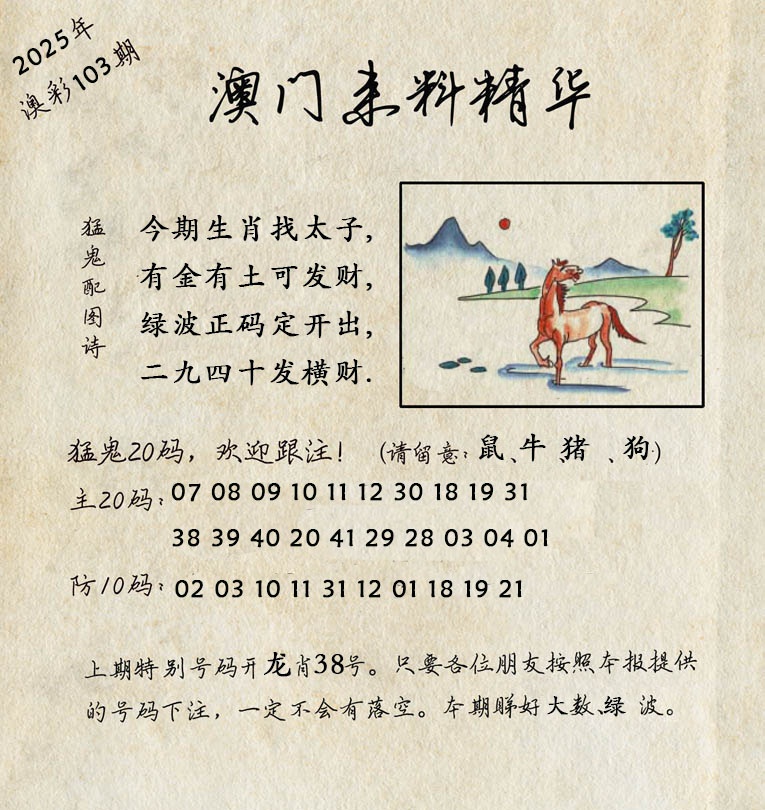 2025年
澳彩103期
澳门来料精华
猛鬼配图诗
今期生肖找太子,
有金有土可发财,
绿波正码定开出,
二九四十发横财.
猛鬼20码，欢迎跟注！（请留意：鼠、牛 猪 、狗）
主20码：07 08 09 10 11 12 30 18 19 31
38 39 40 20 41 29 28 03 04 01
防10码：02 03 10 11 31 12 01 18 19 21
上期特别号码开龙肖38号。只要各位朋友按照本报提供
的号码下注，一定不会有落空。本期睇好大数、绿 波。